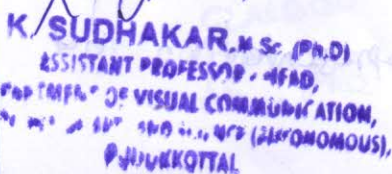 K. SUDHAKAR, M Sc. (Ph.D)
ASSISTANT PROFESSOR & HEAD,
DEPARTMENT OF VISUAL COMMUNICATION,
AND (AUTONOMOUS),
PUDUKKOTTAI